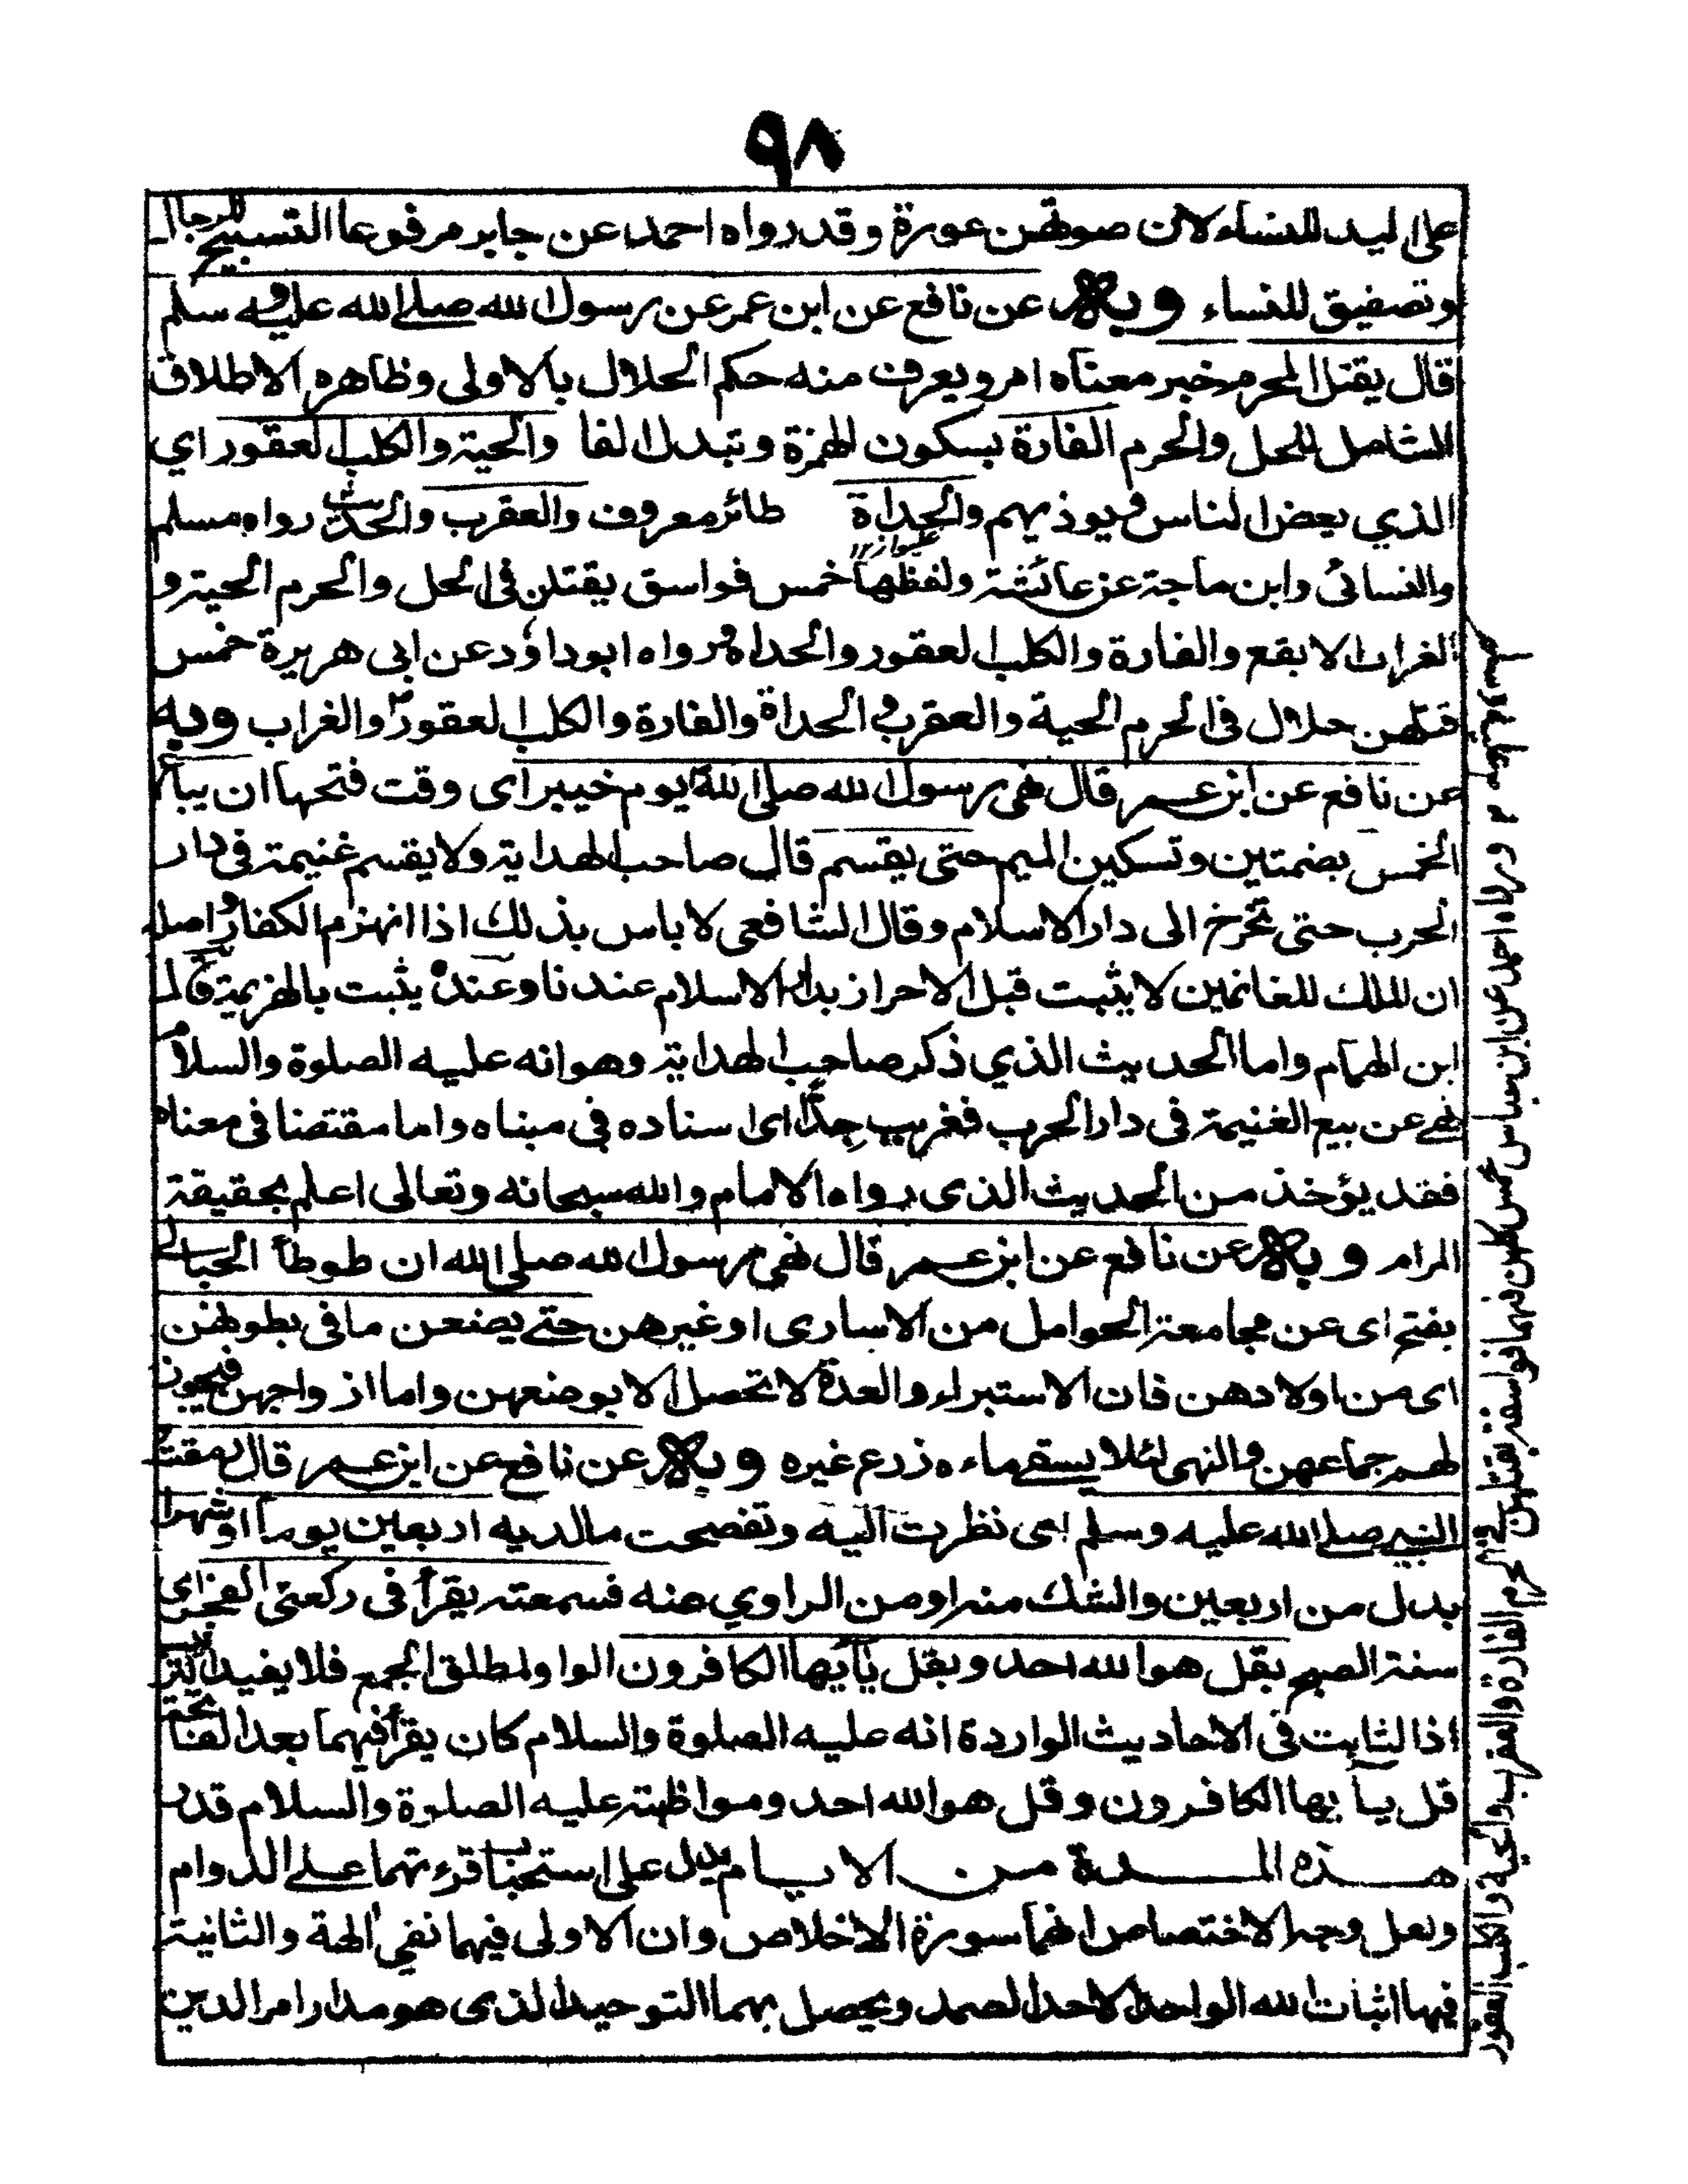 ٩٨
على اليد للنساء لان صوتهن عورة وقد رواه احمد عن جابر مرفوعا التسبيح للرجال
وتصفيق للنساء وبه عن نافع عن ابن عمر عن رسول الله صلى الله عليه وسلم
قال يقتل المحرم خبر معناه امر ويعرف منه حكم الحلال بالاولى وظاهره الاطلاق
الشامل للحل والحرم الفارة بسكون الهمزة وتبدل الفا والحية والكلب العقور اي
الذي يعض الناس ويوذيهم والحداة طائر معروف والعقرب والحديث رواه مسلم
والنسائى وابن ماجة عن عائشة ولفظها خمس فواسق يقتلن فى الحل والحرم الحية و
الغراب الابقع والفارة والكلب العقور والحداة ورواه ابوداود عن ابى هريرة خمس
قتلهن حلال فى الحرم الحية والعقرب والحداة والفارة والكلب العقور والغراب وبه
عن نافع عن ابن عمر قال نهى رسول الله صلى الله يوم خيبر اى وقت فتحها ان يباع
الخمس بضمتين وتسكين الميم حتى يقسم قال صاحب الهداية ولا يقسم غنيمة فى دار
الحرب حتى تخرج الى دار الاسلام وقال الشافعى لا باس بذلك اذا انهزم الكفار واصله
ان الملك للغانمين لا يثبت قبل الاحراز بدار الاسلام عندنا وعنده يثبت بالهزيمة قال
ابن الهمام واما الحديث الذي ذكر صاحب الهداية وهو انه عليه الصلوة والسلام
نهى عن بيع الغنيمة فى دار الحرب فغريب جدًا اى اسناده فى مبناه واما مقتضا فى معناه
فقد يؤخذ من الحديث الذى رواه الامام والله سبحانه وتعالى اعلم بحقيقة
المرام وبه عن نافع عن ابن عمر قال نهى رسول الله صلى الله ان طوطأ الحبالى
بفتح اى عن مجامعة الحوامل من الاسارى او غيرهن حتى يضعن ما فى بطونهن
اى من اولادهن فان الاستبراء والعدة لا تحصل الا بوضعهن واما ازواجهن فيجوز
لهم جماعهن والنهى لئلا يسقى ماءه زرع غيره وبه عن نافع عن ابن عمر قال رمقت
النبى صلى الله عليه وسلم اى نظرت اليه وتفصحت مالديه اربعين يوما او شهرا
بدل من اربعين والشك منه او من الراوي عنه فسمعته يقرأ فى ركعتى الفجر اى
سنة الصبح بقل هو الله احد وبقل يأيها الكافرون الواو لمطلق الجمع فلا يفيد الترتيب
اذ الثابت فى الاحاديث الواردة انه عليه الصلوة والسلام كان يقرأ فيهما بعد الفاتحة
قل يا يها الكافرون وقل هو الله احد ومواظبته عليه الصلوة والسلام قدر
هذه المدة من الايام يدل على استحباب قرءتهما على الدوام
ولعل وجه الاختصاص انهما سورة الاخلاص وان الاولى فيهما نفي الهة والثانية
فيها اثبات الله الواحد الاحد الصمد ويحصل بهما التوحيد الذى هو مدار امر الدين
ورواه احمد عن ابن عباس خمس كلهن فيهما فواسقة يقتلهن فى الحرم الفارة والعقرب والحية والكلب العقور